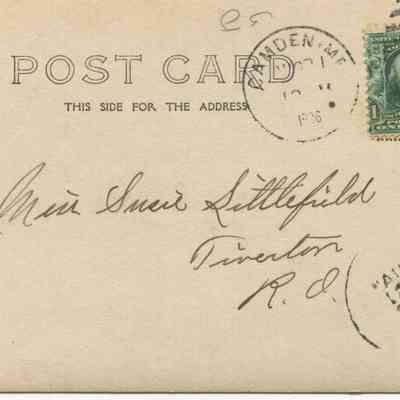 POST CARD
THIS SIDE FOR THE ADDRESS
CAMDEN, ME.
1906
1
Miss Susie Littlefield
Tiverton
R. I.